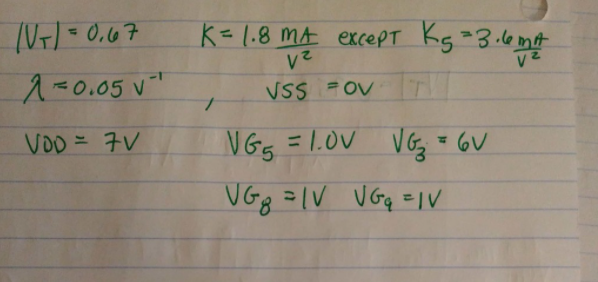 |VT| = 0.67 K = 1.8 mA/V² EXCEPT K5 = 3.6 mA/V²
λ = 0.05 V⁻¹ , VSS = 0V
VDD = 7V VG5 = 1.0V VG3 = 6V
VG8 = 1V VG9 = 1V